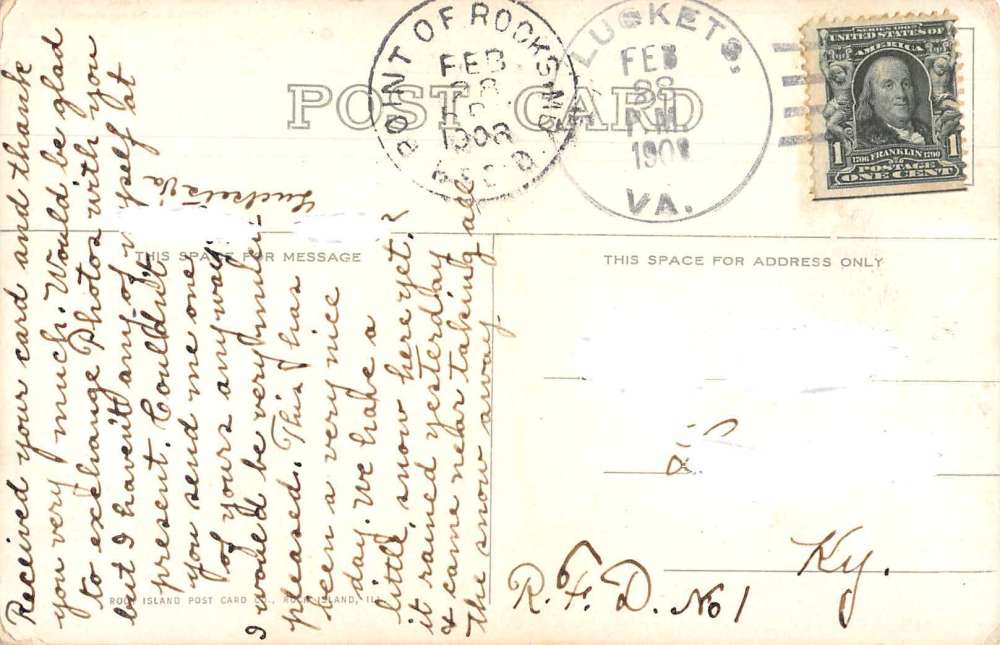 POST CARD
POINT OF ROCKS, MD.
FEB
28
1908
REC'D
LUCKETS,
FEB
28
P.M.
1908
VA.
SERIES 1902
UNITED STATES OF
AMERICA
1 1
1706 FRANKLIN 1790
POSTAGE
ONE CENT
Lucketts Va
THIS SPACE FOR MESSAGE
THIS SPACE FOR ADDRESS ONLY
Received your card and thank
you very much. Would be glad
to exchange Photos with you
but I haven't any of myself at
present. Couldn't
you send me one
of yours anyway.
I would be very much
pleased. This has
been a very nice
day. We have a
little snow here yet.
it rained yesterday
& came near taking all
the snow away.
Ky.
R.F.D. No 1
ROCK ISLAND POST CARD CO., ROCK ISLAND, ILL